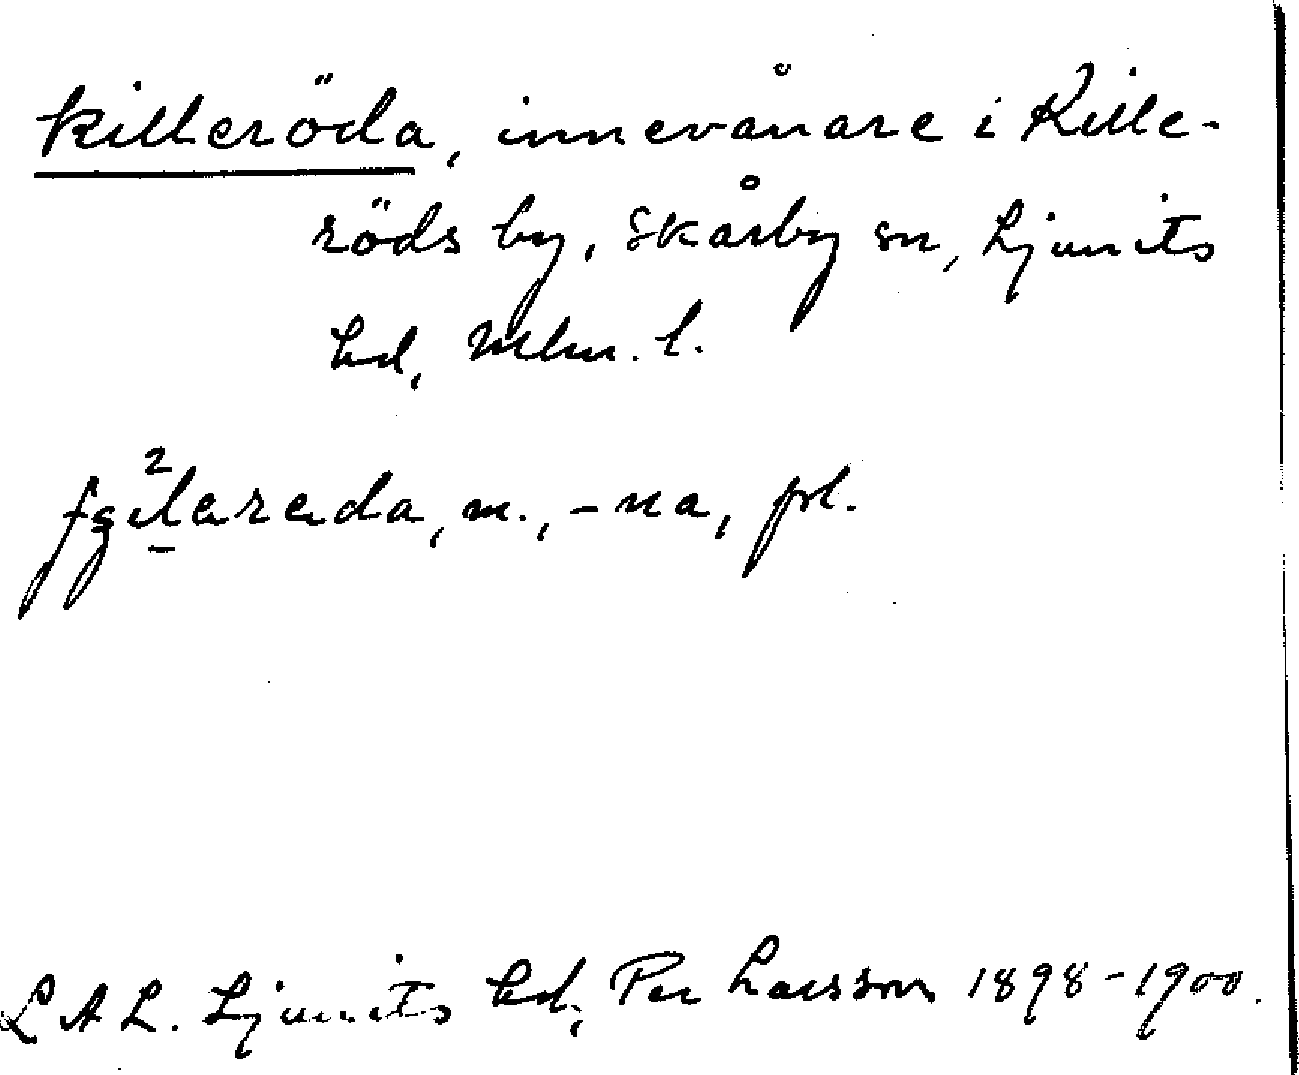 killeröda, innevånare i Kille-
röds by, Skårby sn, Ljunits
hd, Mlm. l.
m., -na, pl.
L A L. Ljunits hd, Per Larsson 1898-1900.